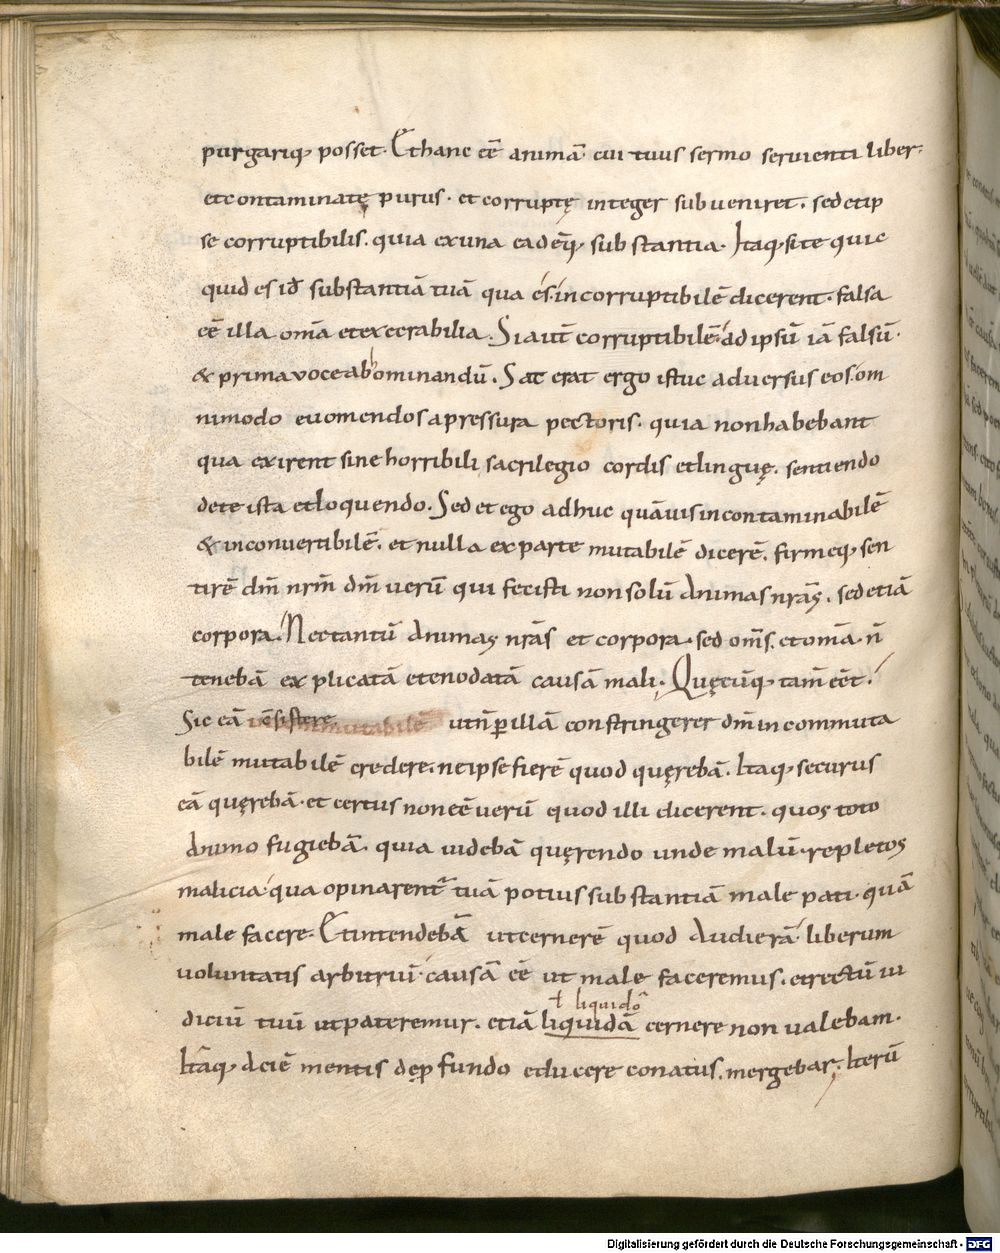 purgariq; posset. Et hanc eē animā cui tuus sermo seruienti liber.
et contaminatę purus. et corruptę integer subueniret. sed et ip
se corruptibilis. quia ex una eadēq; substantia. Itaq; si te quic
quid es id substantiā tuā qua es. incorruptibilē dicerent. falsa
eē illa om̄a et excerabilia. Si aut̄ corruptibilē. ad ipsū iā falsū.
& prima uoce abhominandū. Sat erat ergo istuc aduersus eos. om
nimodo euomendos a pressura pectoris. quia non habebant
qua exirent sine horribili sacrilegio cordis et linguę. sentiendo
de te ista et loquendo. Sed et ego adhuc quāuis incontaminabilē
& inconuertibilē. et nulla ex parte mutabilē dicerē. firmeq; sen
tirē dm̄ nrm̄ dm̄ uerū qui fecisti non solū animas nrās. sed etiā
corpora. Nec tantū animas nrās et corpora. sed om̄s. et om̄a. n̄
tenebā explicatā et enodatā causā mali. Quęcūq; tam̄ eēt.
Sic eā utn̄ p illā constringerer dm̄ incommuta
bilē mutabilē credere. ne ipse fierē quod quęrebā. Itaq; securus
eā quęrebā. et certus non eē uerū quod illi dicerent. quos toto
animo fugiebā. quia uidebā quęrendo unde malū. repletos
malicia. qua opinarent tuā potius substantiā male pati. quā
male facere. Et intendebā ut cernerē quod audierā. liberum
uoluntatis arbitriū. causā eē ut male faceremus. et rectū iu
diciū tuū ut pateremur. et eā ł liquido liquidā cernere non ualebam.
Itaq; aciē mentis de pfundo educere conatus. mergebar. Iterū
Digitalisierung gefördert durch die Deutsche Forschungsgemeinschaft - DFG